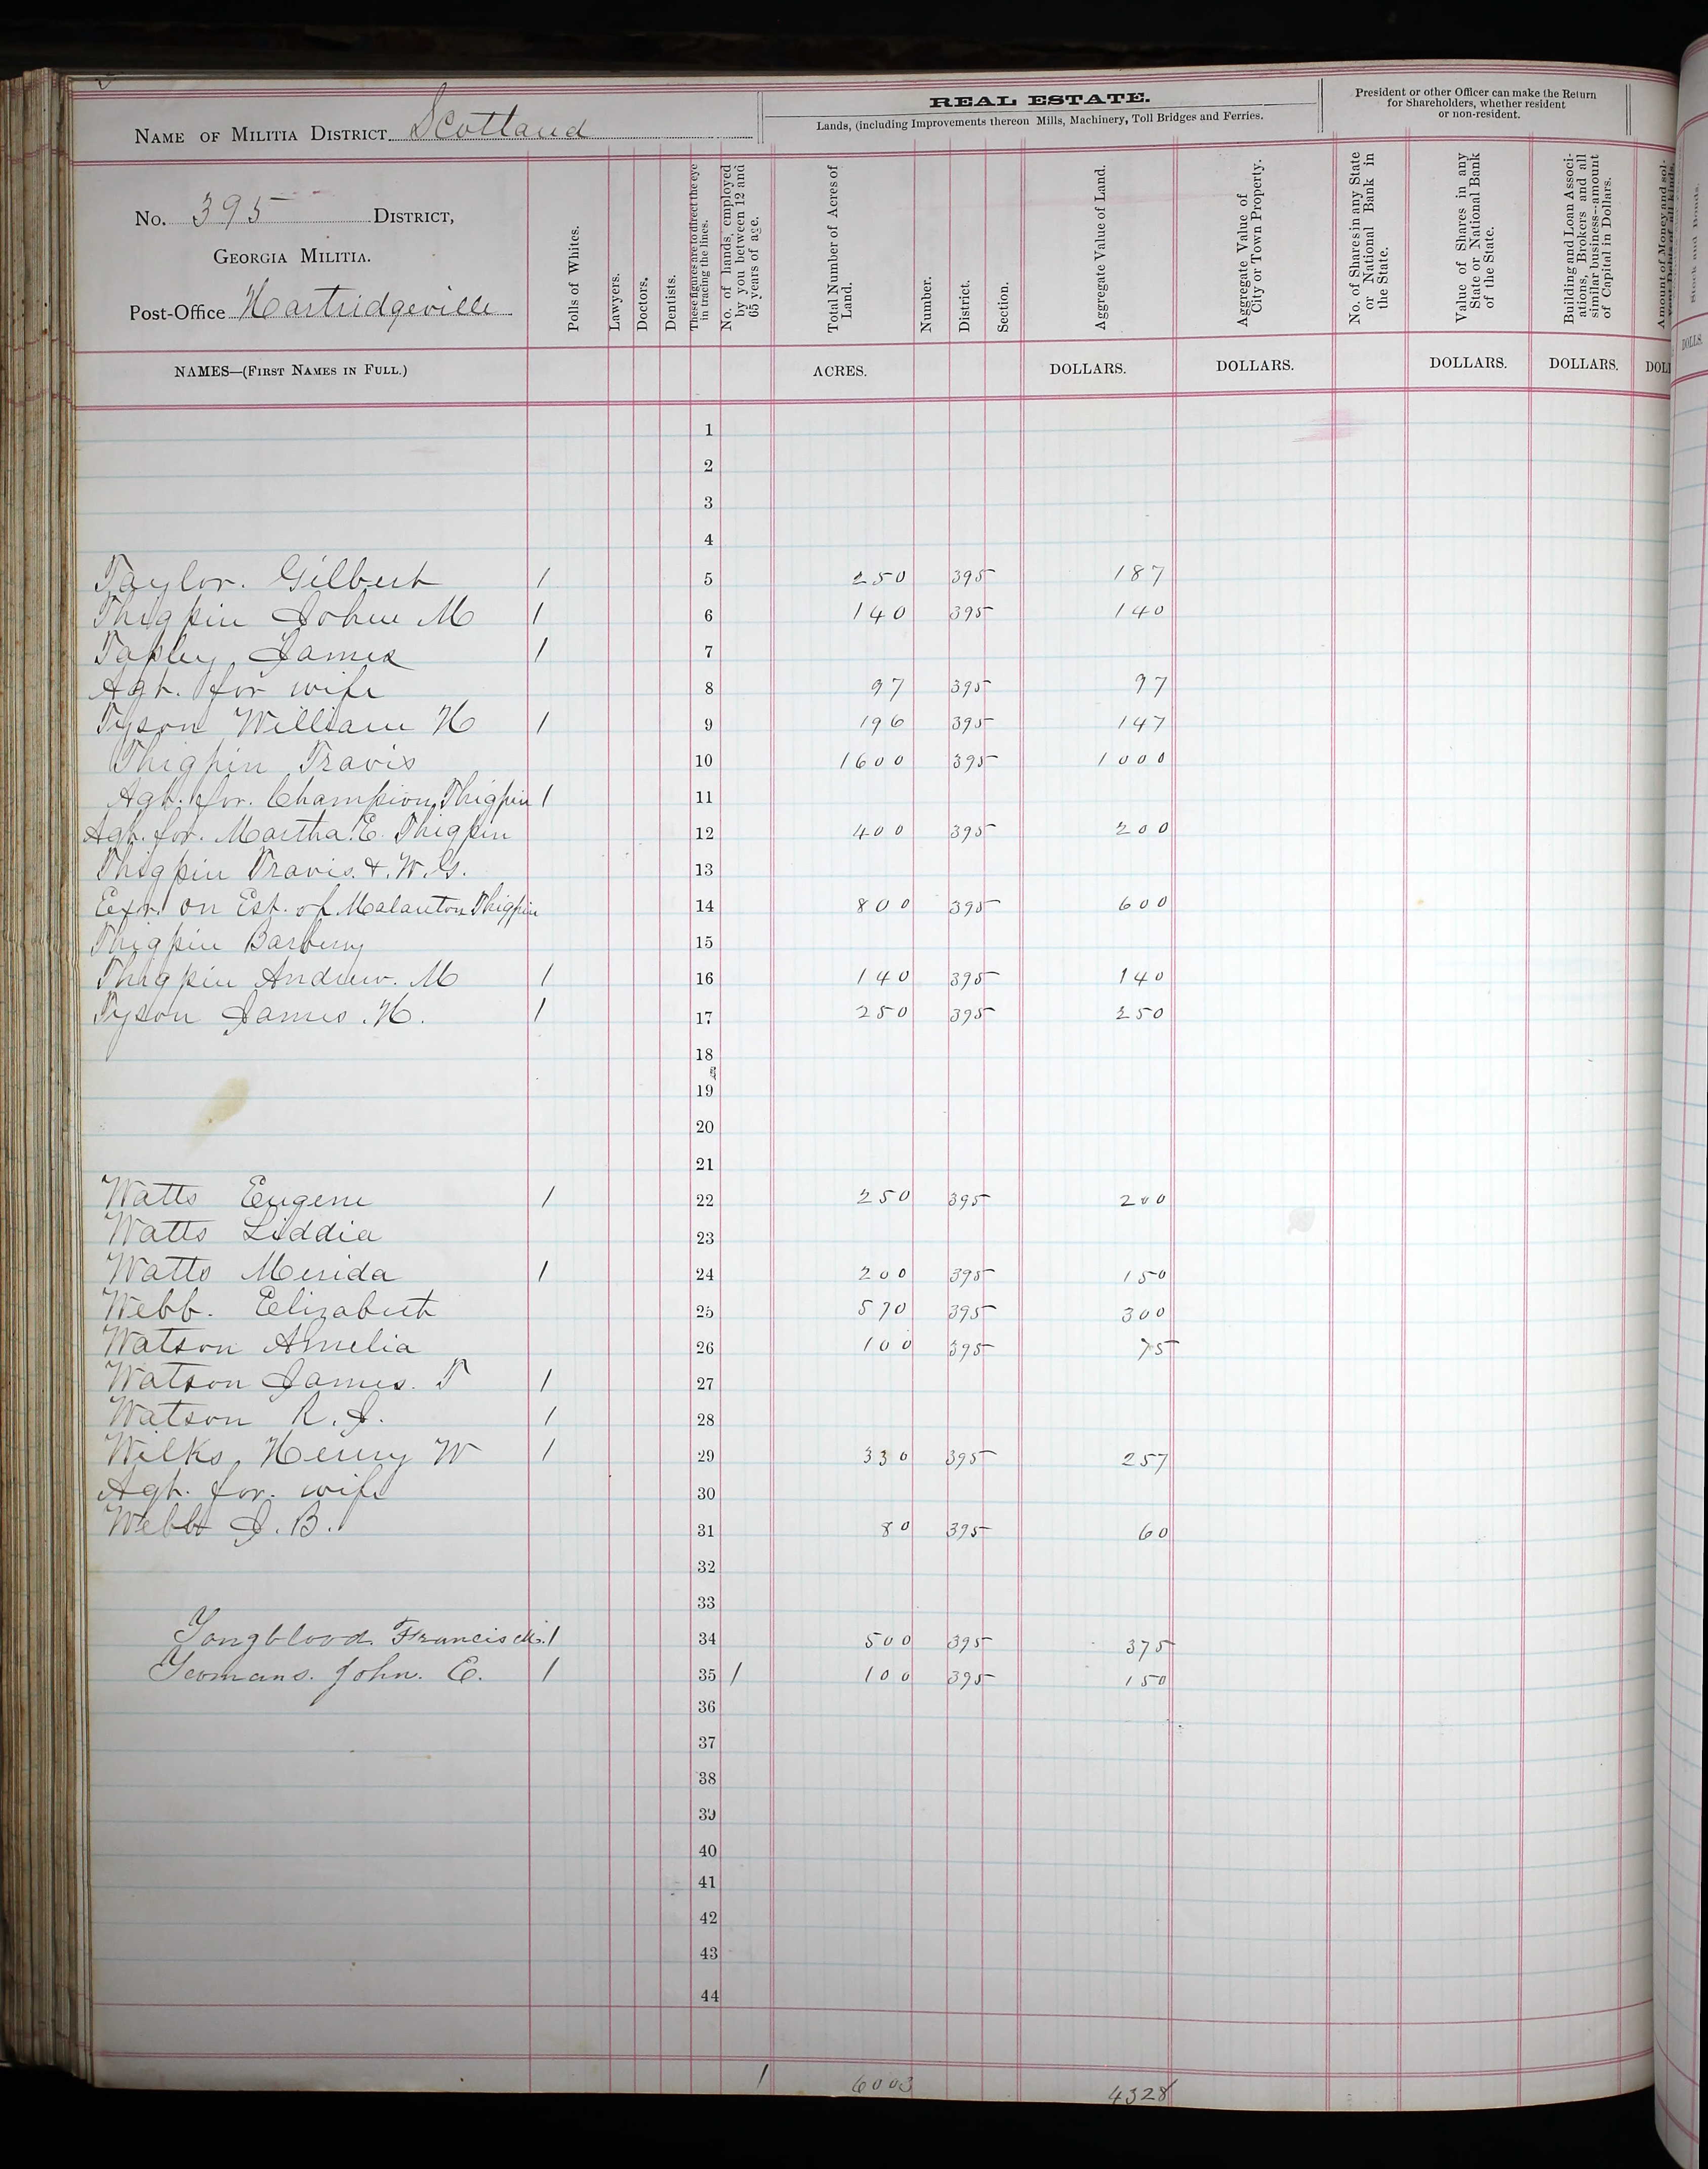 NAME OF MILITIA DISTRICT Scotland
REAL ESTATE.
Lands, (including Improvements thereon Mills, Machinery, Toll Bridges and Ferries.
President or other Officer can make the Return
for Shareholders, whether resident
or non-resident.
No. 395 DISTRICT,
GEORGIA MILITIA.
Post-Office Hartridgeville
Polls of Whites.
Lawyers.
Doctors.
Dentists.
These figures are to direct the eye
in tracing the lines.
No. of hands, employed
by you between 12 and
65 years of age.
Total Number of Acres of
Land.
Number.
District.
Section.
Aggregate Value of Land.
Aggregate Value of
City or Town Property.
No. of Shares in any State
or National Bank in
the State.
Value of Shares in any
State or National Bank
of the State.
Building and Loan Associ-
ations, Brokers and all
similar business—amount
of Capital in Dollars.
Amount of Money and sol-
Stock and Bonds.
NAMES—(FIRST NAMES IN FULL.) ACRES. DOLLARS. DOLLARS. DOLLARS. DOLLARS. DOLL DOLLS.
1
2
3
4
Taylor. Gilbert 1 5 250 395 187
Thigpin John M 1 6 140 395 140
Tapley James 1 7
Agt. for wife 8 97 395 97
Tyson William H 1 9 196 395 147
Thigpin Travis 10 1600 395 1000
Agt. for. Champion Thigpin 1 11
Agt. for. Martha E. Thigpin 12 400 395 200
Thigpin Travis. & W. G. 13
Exr. on Est. of Malanton Thigpin 14 800 395 600
Thigpin Barberry 15
Thigpin Andrew. M 1 16 140 395 140
Tyson James. H. 1 17 250 395 250
18
19
20
21
Watts Eugene 1 22 250 395 200
Watts Liddia 23
Watts Merida 1 24 200 395 150
Webb. Elizabeth 25 570 395 300
Watson Amelia 26 100 395 75
Watson James. T 1 27
Watson R. J. 1 28
Wilks Henry W 1 29 330 395 257
Agt. for. wife 30
Webb J. B. 31 80 395 60
32
33
Yongblood. Francis M. 1 34 500 395 375
Yeomans. John. E. 1 35 1 100 395 150
36
37
38
39
40
41
42
43
44
1 6003 4328